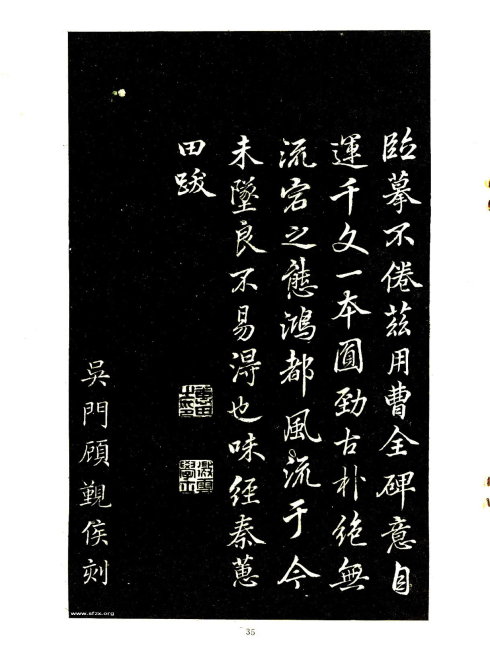 臨摹不倦茲用曹全碑意自
運千文一本圓勁古朴絶無
流宕之態鴻都風流于今
未墜良不易得也味經秦蕙
田跋
吳門顧觐侯刻
www.sfzx.org
35